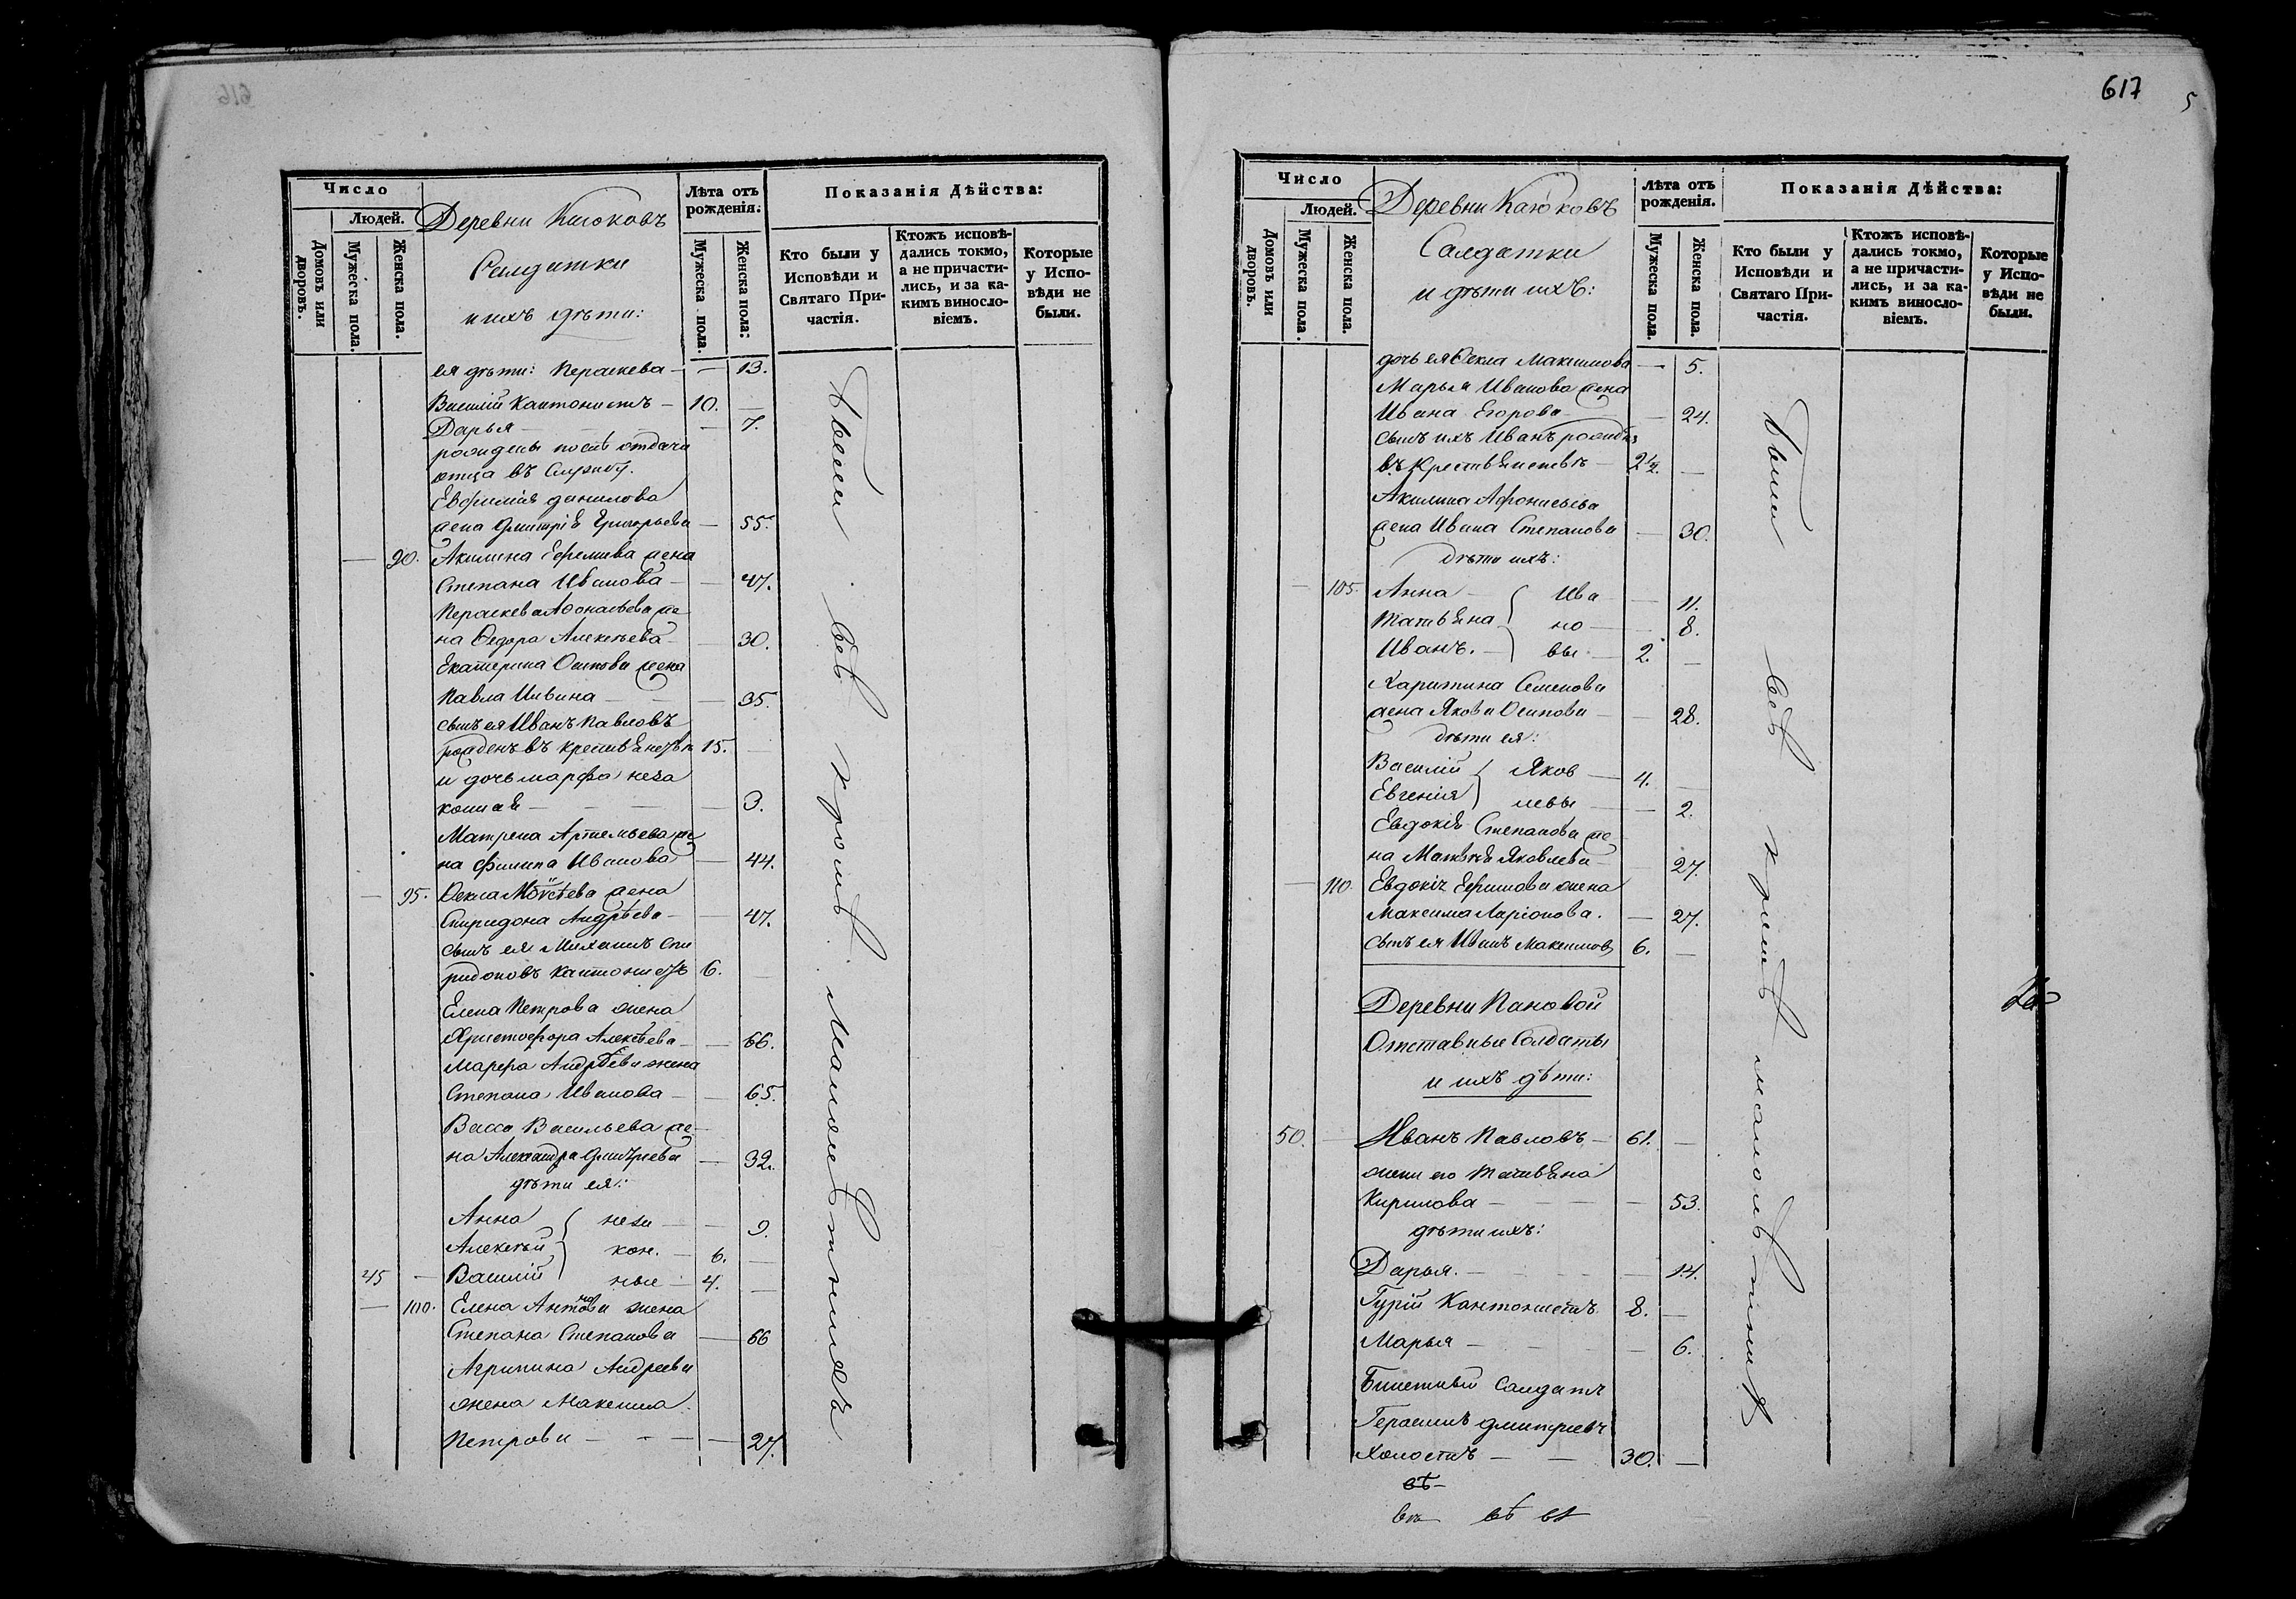 616
Число
Людей.
Домовъ или дворовъ.
Мужеска пола.
Женска пола.
Деревни Каюковъ
Салдатки
и ихъ дѣти:
Лѣта отъ рожденія:
Мужеска пола.
Женска пола:
Показанія Дѣйства:
Кто были у Исповѣди и Святаго Причастія.
Ктожъ исповѣдались токмо, а не причастились, и за какимъ винословіемъ.
Которые у Исповѣди не были.
ея дѣти: Пераскева — — 13.
Василій Кантонистъ — 10. —
Дарья — — 7.
рождены послѣ отдачи
отца въ Службу.
Евфимія данилова
жена Дмитрія Григорьева — 55.
— 90. Акилина Ефремова жена
Степана Иванова — — 47.
Пераскева Афонасьева же
на Ѳедора Алексѣева — 30.
Екатерина Осипова жена
Павла Ильина — — 35.
сынъ ея Иванъ Павловъ
рожденъ въ крестьянствѣ 15. —
и дочь марфа неза
конная — — — 9.
Матрена Артемьева же
на Филипа Иванова — 44.
— 95. Ѳекла Моѵсѣева жена
Спиридона Андрѣева — — 47.
сынъ ея Михаилъ Спи
ридоновъ кантонистъ 6. —
Елена Петрова жена
Христофора Алексѣева — — 66.
Марфа Андрѣева жена
Степана Иванова — — 65.
Васса Васильева же
на Александра Дмитріева — 32.
дѣти ея:
Анна } неза — — 9.
Алексѣй } кон. — 6. —
45 — Василій } ные — 4. —
— 100. Елена Антонова жена
Степана Степанова — 66
Агрипина Андреева
жена Максима
Петрова — — — 27.
были всѣ кромѣ малолѣтнихъ
617
5
Число
Людей.
Домовъ или дворовъ.
Мужеска пола.
Женска пола.
Деревни Каюковъ
Салдатки
и дѣти ихъ:
Лѣта отъ рожденія.
Мужеска пола.
Женска пола.
Показанія Дѣйства:
Кто были у Исповѣди и Святаго Причастія.
Ктожъ исповѣдались токмо, а не причастились, и за какимъ винословіемъ.
Которые у Исповѣди не были.
дочь ея Ѳекла Максимова — 5.
Марья Иванова жена
Ивана Егорова — — 24.
сынъ ихъ Иванъ рожденъ
въ крестьянствѣ — 2½. —
Акилина Афонисьева
жена Ивана Степанова — 30.
дѣти ихъ:
— 105. Анна } Ива — — 11.
Татьяна } но — — 8.
Иванъ. } вы — 2. —
Харитина Семенова
жена Якова Осипова — — 28.
дѣти ея:
Василій } Яков — 4. —
Евгенія } левы — — 2.
Евдокія Степанова же
на Матвѣя Яковлева — 27.
— 110. Евдокія Ефимова жена
Максима Ларіонова. — 27.
сынъ ея Иванъ Максимовъ 6. —
Деревни Пановой
Отставные Солдаты
и ихъ дѣти:
50. — Иванъ Павловъ — 61. —
жена его Татьяна
Кирилова — — — 53.
дѣти ихъ:
Дарья. — — — 14.
Гурій Кантонистъ 8. —
Марья — — — 6.
Билетный Салдатъ
Герасимъ Дмитріевъ
Холостъ — — 30. —
были всѣ кромѣ малолѣтнихъ
вѣ
вѣ